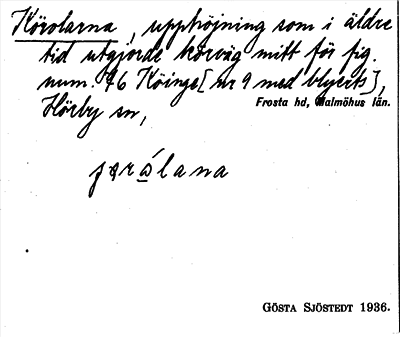 Körolarna, upphöjning som i äldre
tid utgjorde körväg mitt för fig.
num. 46 Köinge [nr 9 med blyerts],
Hörby sn,
Frosta hd, Malmöhus län.
GÖSTA SJÖSTEDT 1936.